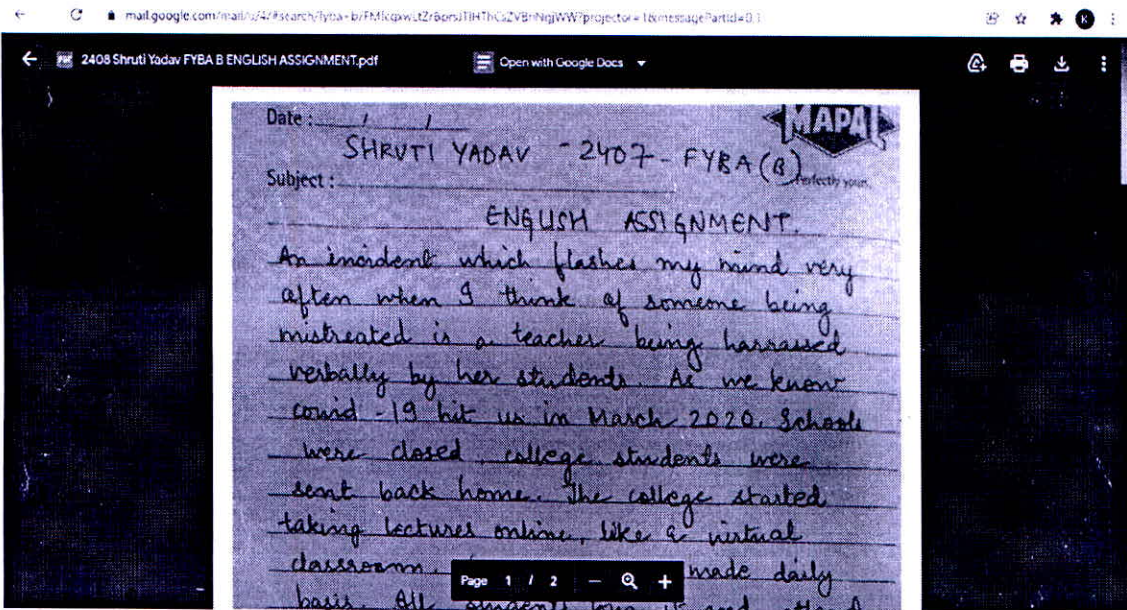 mail.google.com/mail/u/4/#search/fyba+b/
2408 Shruti Yadav FYBA B ENGLISH ASSIGNMENT.pdf
Open with Google Docs
K
MAPA
Date : / /
SHRUTI YADAV - 2407 - FYBA (B)
Perfectly your
Subject :
ENGLISH ASSIGNMENT.
An incident which flashes my mind very
often when I think of someone being
mistreated is a teacher being harrassed
verbally by her students. As we know
covid -19 hit us in March 2020. Schools
were closed, college students were
sent back home. The college started
taking lectures online, like a virtual
classroom. made daily
basis. All students
Page 1 / 2